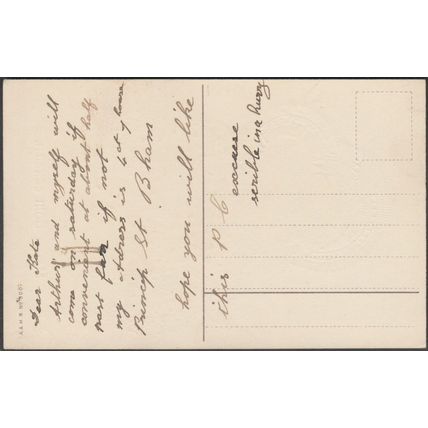 Dear Kate
Arthur and myself will
come on saturday if
convenient at about half
part four if not
my adress is 6 at 7 house
Princip St B'ham
hope you will like
this P C excuse
scrible in a hurry